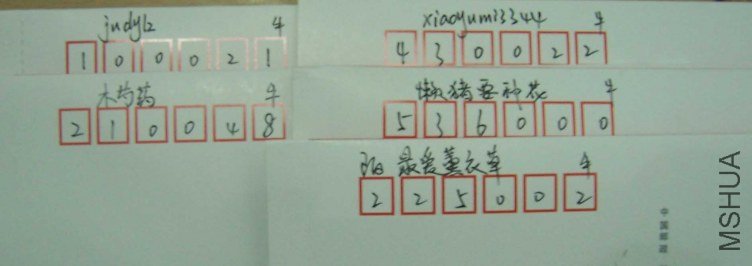 judy12 4
1 0 0 0 2 1
xiaoyum13344 4
4 3 0 0 2 2
木芍药 4
2 1 0 0 4 8
懒猪要种花 4
5 3 6 0 0 0
阳 最爱薰衣草 4
2 2 5 0 0 2
中国邮政
MSHUA